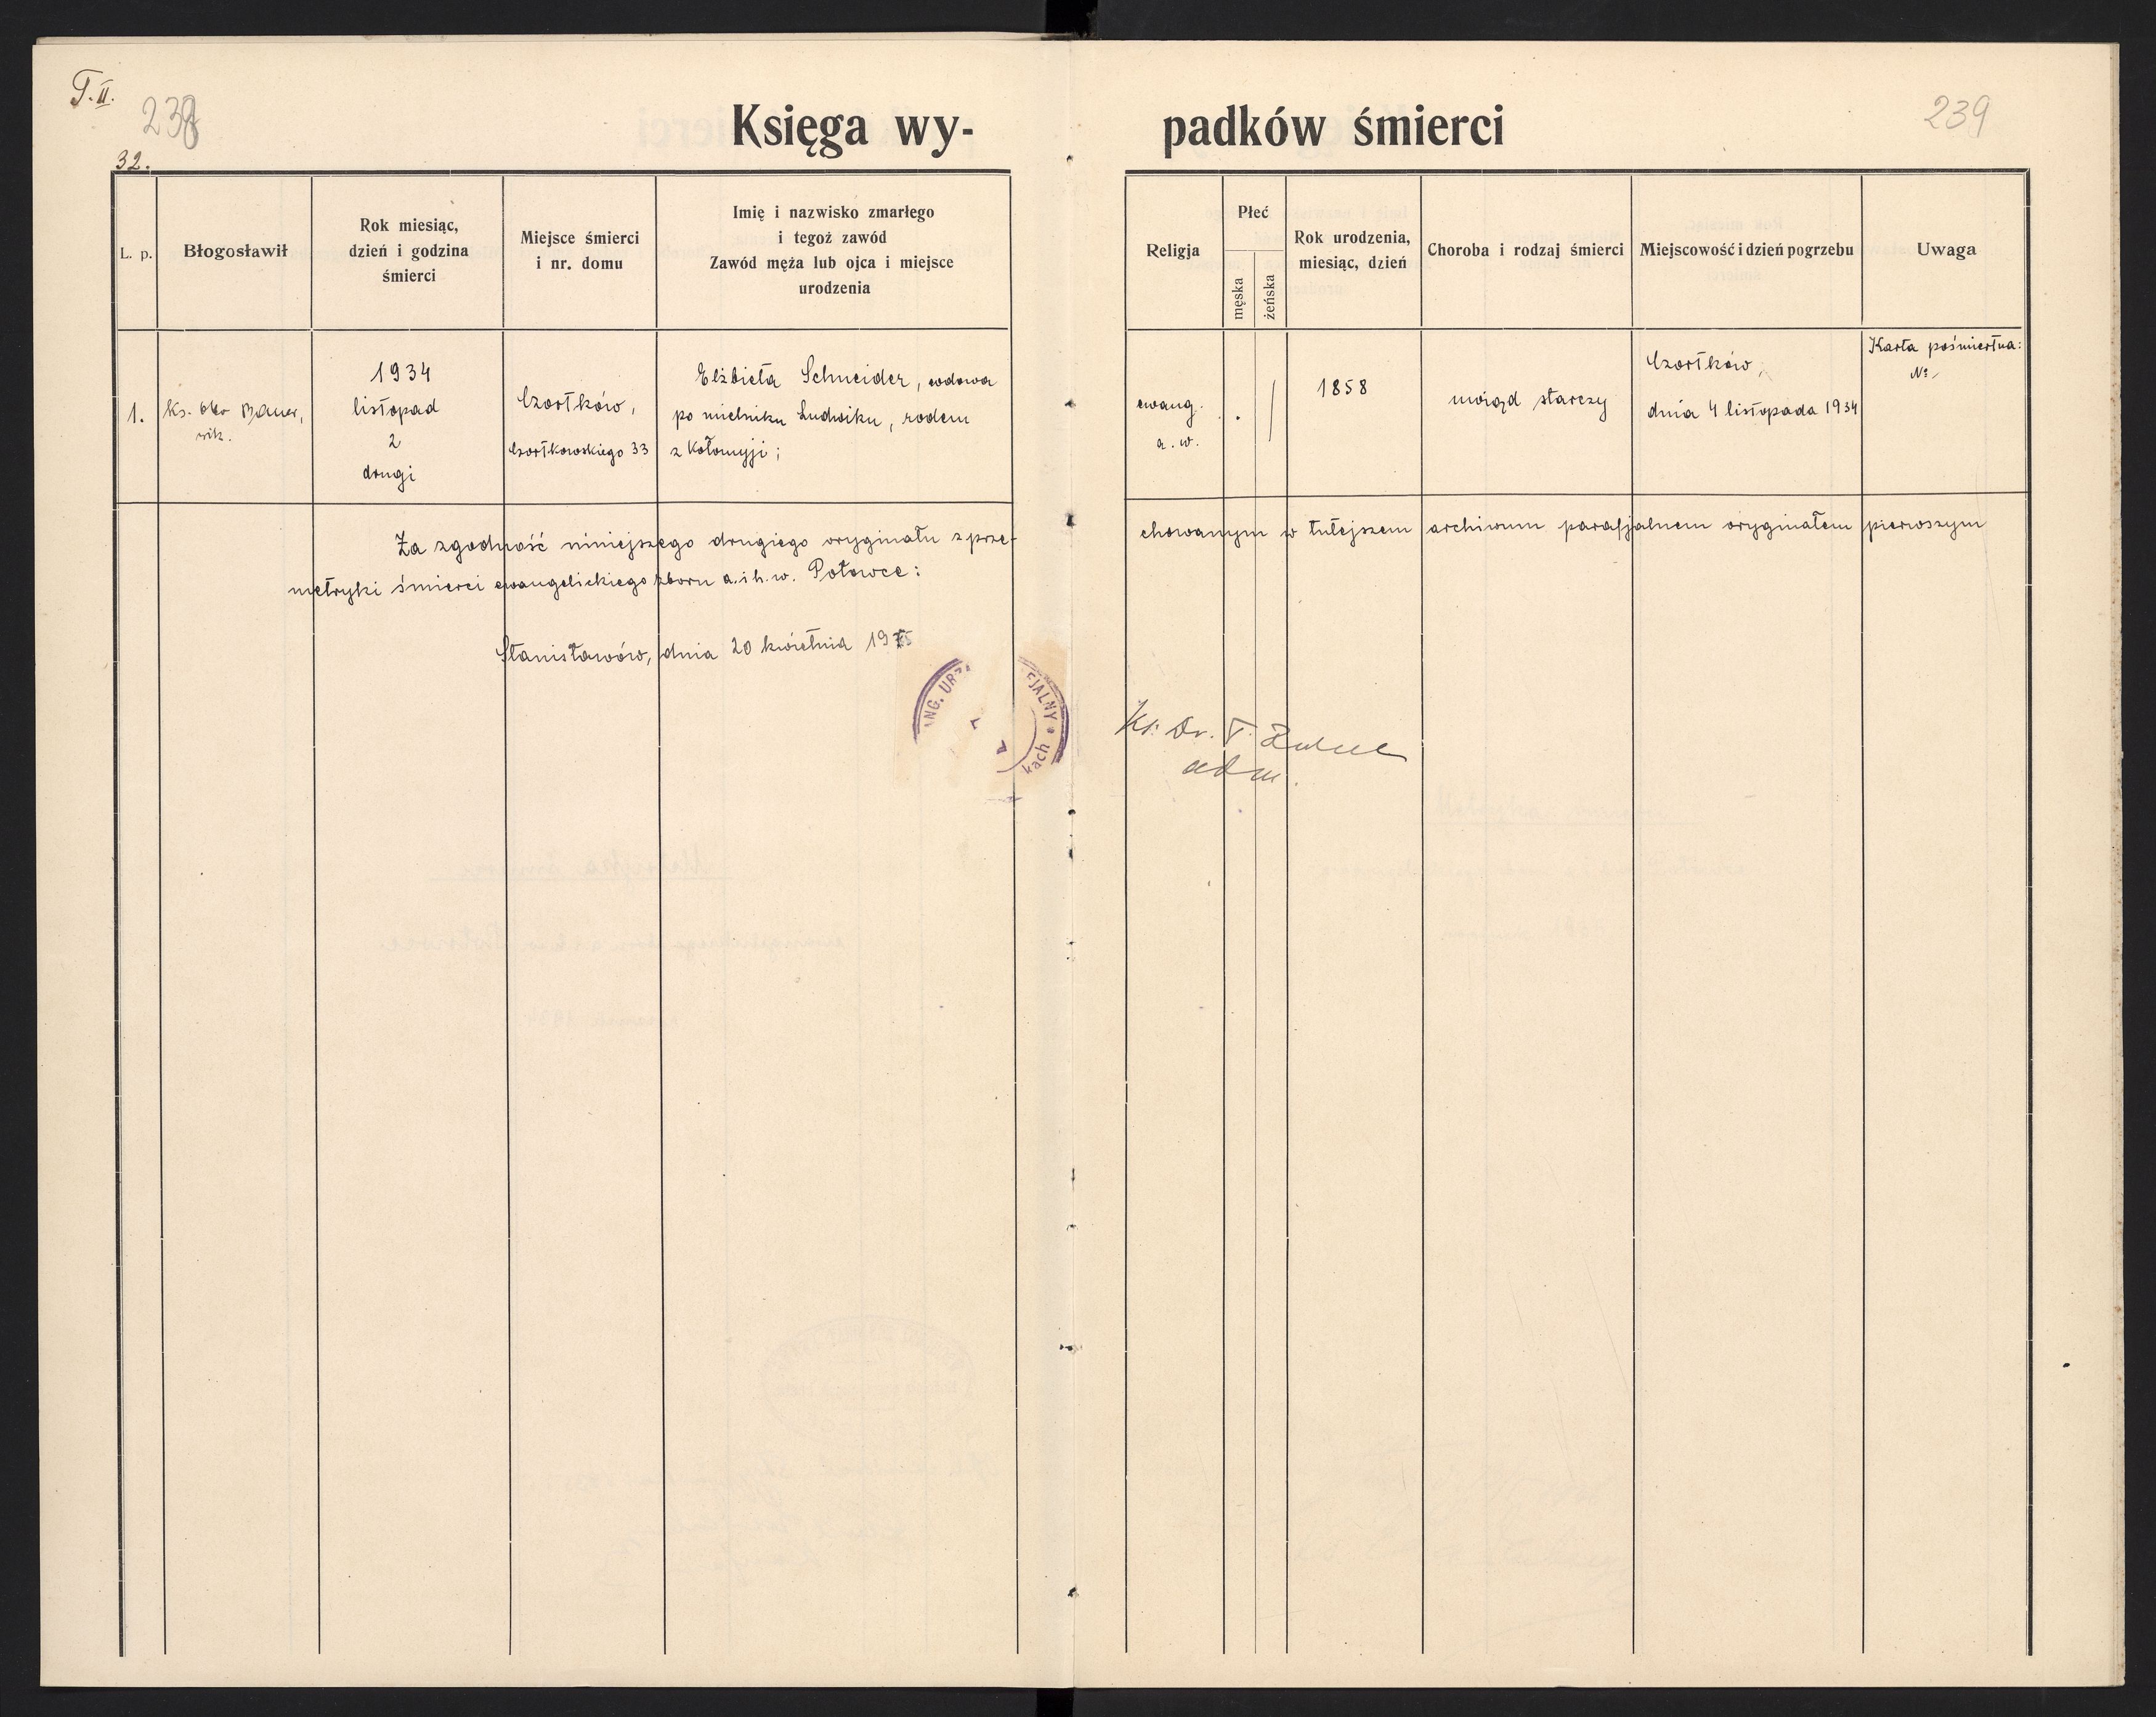 T. II.
238
32.
Księga wy-
L. p.
Błogosławił
Rok miesiąc,
dzień i godzina
śmierci
Miejsce śmierci
i nr. domu
Imię i nazwisko zmarłego
i tegoż zawód
Zawód męża lub ojca i miejsce
urodzenia
1.
Ks. Bauer,
wik.
1934
listopad
2
drugi
Czortków,
Czortkowskiego 33
Elżbieta Schneider, wdowa
po mielniku Ludwiku, rodem
z Kołomyji;
Za zgodność niniejszego drugiego oryginału z prze-
metryki śmierci ewangelickiego zboru a. i h. w. Potowce:
Stanisławów, dnia 20 kwietnia 19
NG. URZ
EJALNY
kach
padków śmierci
239
Religja
Płeć
męska
żeńska
Rok urodzenia,
miesiąc, dzień
Choroba i rodzaj śmierci
Miejscowość i dzień pogrzebu
Uwaga
ewang.
a. w.
1858
uwiąd starczy
Czortków,
dnia 4 listopada 1934
Karta pośmiertna:
№
chowanym w tutejszem archiwum parafjalnem oryginałem pierwszym
Ks. Dr. T.
adm.